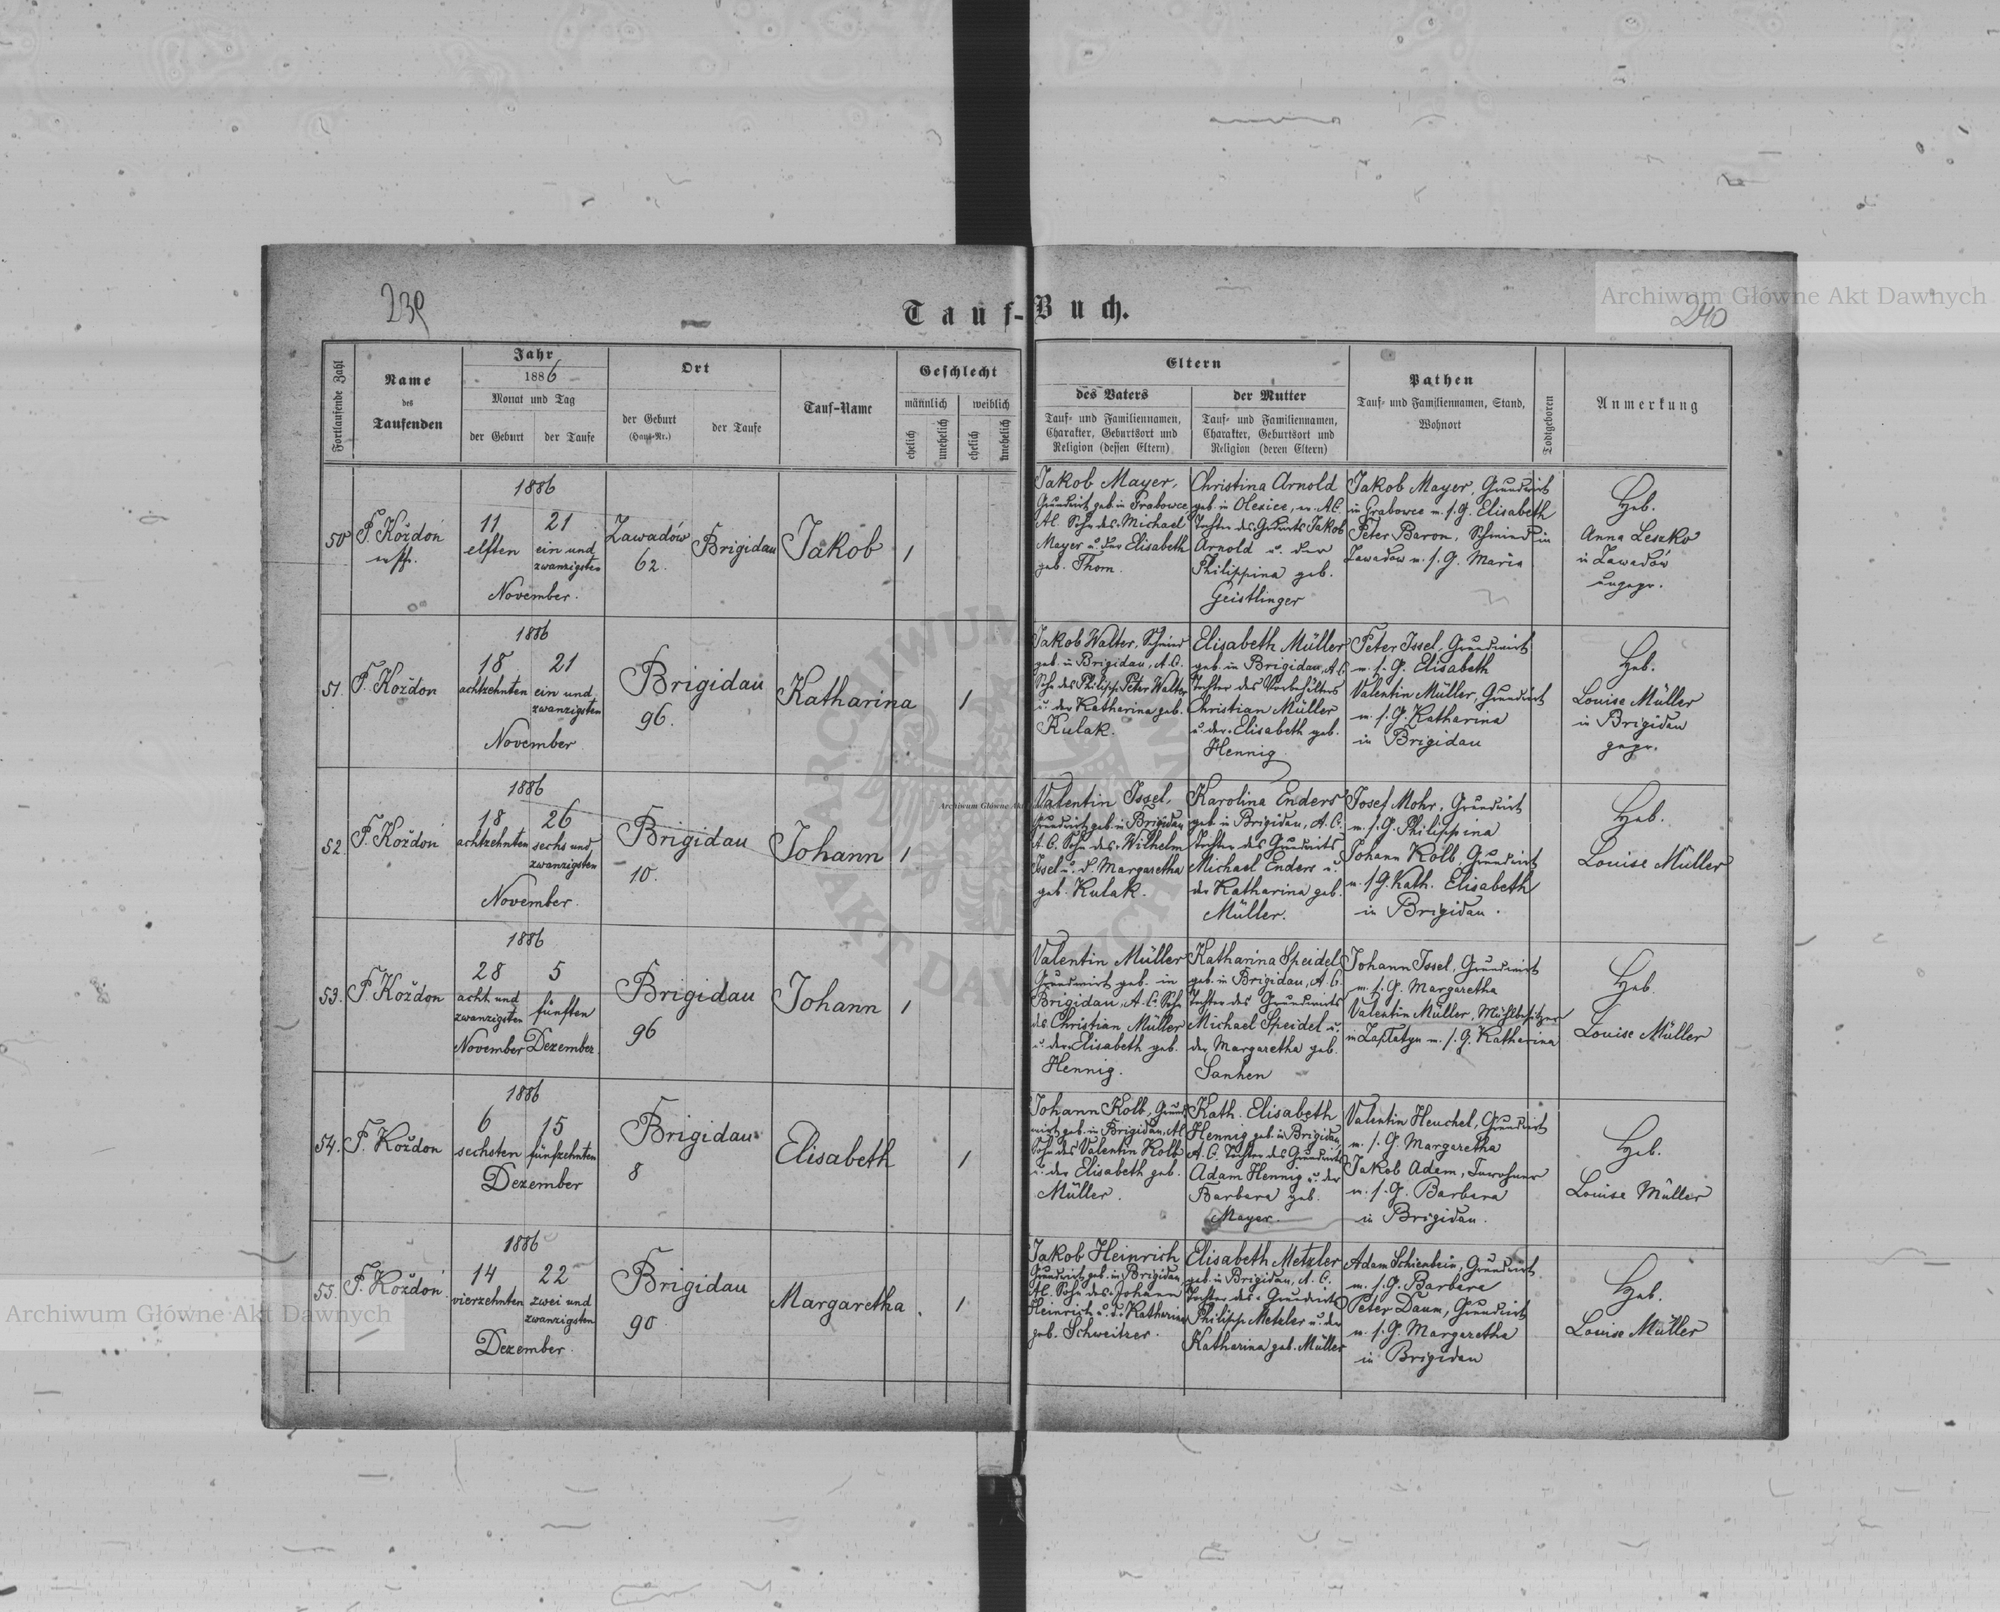 239
Tauf-Buch.
Archiwum Główne Akt Dawnych
240
Fortlaufende Zahl
Name
des
Taufenden
Jahr
1886
Monat und Tag
der Geburt
der Taufe
Ort
der Geburt
(Haus-Nr.)
der Taufe
Tauf-Name
Geschlecht
männlich
weiblich
ehelich
unehelich
ehelich
unehelich
Eltern
des Vaters
Tauf- und Familiennamen,
Charakter, Geburtsort und
Religion (dessen Eltern)
der Mutter
Tauf- und Familiennamen,
Charakter, Geburtsort und
Religion (deren Eltern)
Pathen
Tauf- und Familiennamen, Stand,
Wohnort
Todtgeboren
Anmerkung
50
F. Koždoń
1886
11
elften
21
ein und
zwanzigsten
November.
Zawadów
62.
Brigidau
Jakob
1
Jakob Mayer,
Grundwirt geb. in Grabowce
A.C. Sohn des Michael
Mayer u. der Elisabeth
geb. Thom.
Christina Arnold
geb. in Olexice, A.C.
Tochter des Jakob
Arnold u. der
Philippina geb.
Geistlinger
Jakob Mayer, Grundwirt
in Grabowce m. s. G. Elisabeth
Peter Baron, Schmied in
Zawadów m. s. G. Maria
Heb.
Anna Leszko
in Zawadów
ungepr.
51.
F. Koždoń
1886
18
achtzehnten
21
ein und
zwanzigsten
November
Brigidau
96.
Katharina
1
Jakob Walter, Schmied
geb. in Brigidau, A.C.
Sohn des Philipp Peter Walter
u. der Katharina geb.
Kulak.
Elisabeth Müller
geb. in Brigidau, A.C.
Tochter des Vorbehälters
Christian Müller
u. der Elisabeth geb.
Hennig
Peter Issel, Grundwirt
m. s. G. Elisabeth
Valentin Müller, Grundwirt
m. s. G. Katharina
in Brigidau
Heb.
Louise Müller
in Brigidau
gepr.
52
F. Koždoń
1886
18
achtzehnten
26
sechs und
zwanzigsten
November.
Brigidau
10.
Johann
1
Valentin Issel,
Grundwirt geb. in Brigidau
A.C. Sohn des Wilhelm
Issel u. d. Margaretha
geb. Kulak.
Karolina Enders
geb. in Brigidau, A.C.
Tochter des Grundwirts
Michael Enders u.
der Katharina geb.
Müller.
Josef Mohr, Grundwirt
m. s. G. Philippina
Johann Kolb, Grundwirt
m. s. G. Kath. Elisabeth
in Brigidau.
Heb.
Louise Müller
53.
F. Koždoń
1886
28
acht und
zwanzigsten
November
5
fünften
Dezember
Brigidau
96
Johann
1
Valentin Müller
Grundwirt geb. in
Brigidau, A.C. Sohn
des Christian Müller
u. der Elisabeth geb.
Hennig.
Katharina Speidel
geb. in Brigidau, A.C.
Tochter des Grundwirts
Michael Speidel u.
der Margaretha geb.
Sanhen
Johann Issel, Grundwirt
m. s. G. Margaretha
Valentin Müller, Mühlbesitzer
in Zaplatyn m. s. G. Katharina
Heb.
Louise Müller
54.
F. Koždoń
1886
6
sechsten
15
fünfzehnten
Dezember
Brigidau
8
Elisabeth
1
Johann Kolb, Grund-
wirt geb. in Brigidau, A.C.
Sohn des Valentin Kolb
u. der Elisabeth geb.
Müller.
Kath. Elisabeth
Hennig geb. in Brigidau,
A.C. Tochter des Grundwirts
Adam Hennig u. der
Barbara geb.
Mayer.
Valentin Heuchel, Grundwirt
m. s. G. Margaretha
Jakob Adam, Inwohner
m. s. G. Barbara
in Brigidau.
Heb.
Louise Müller
55.
F. Koždoń
1886
14
vierzehnten
22
zwei und
zwanzigsten
Dezember.
Brigidau
90
Margaretha
1
Jakob Heinrich
Grundwirt geb. in Brigidau,
A.C. Sohn des Johann
Heinrich u. d. Katharina
geb. Schweitzer.
Elisabeth Metzler
geb. in Brigidau, A.C.
Tochter des Grundwirts
Philipp Metzler u. der
Katharina geb. Müller
Adam Schienbein, Grundwirt
m. s. G. Barbara
Peter Daum, Grundwirt
m. s. G. Margaretha
in Brigidau
Heb.
Louise Müller
Archiwum Główne Akt Dawnych